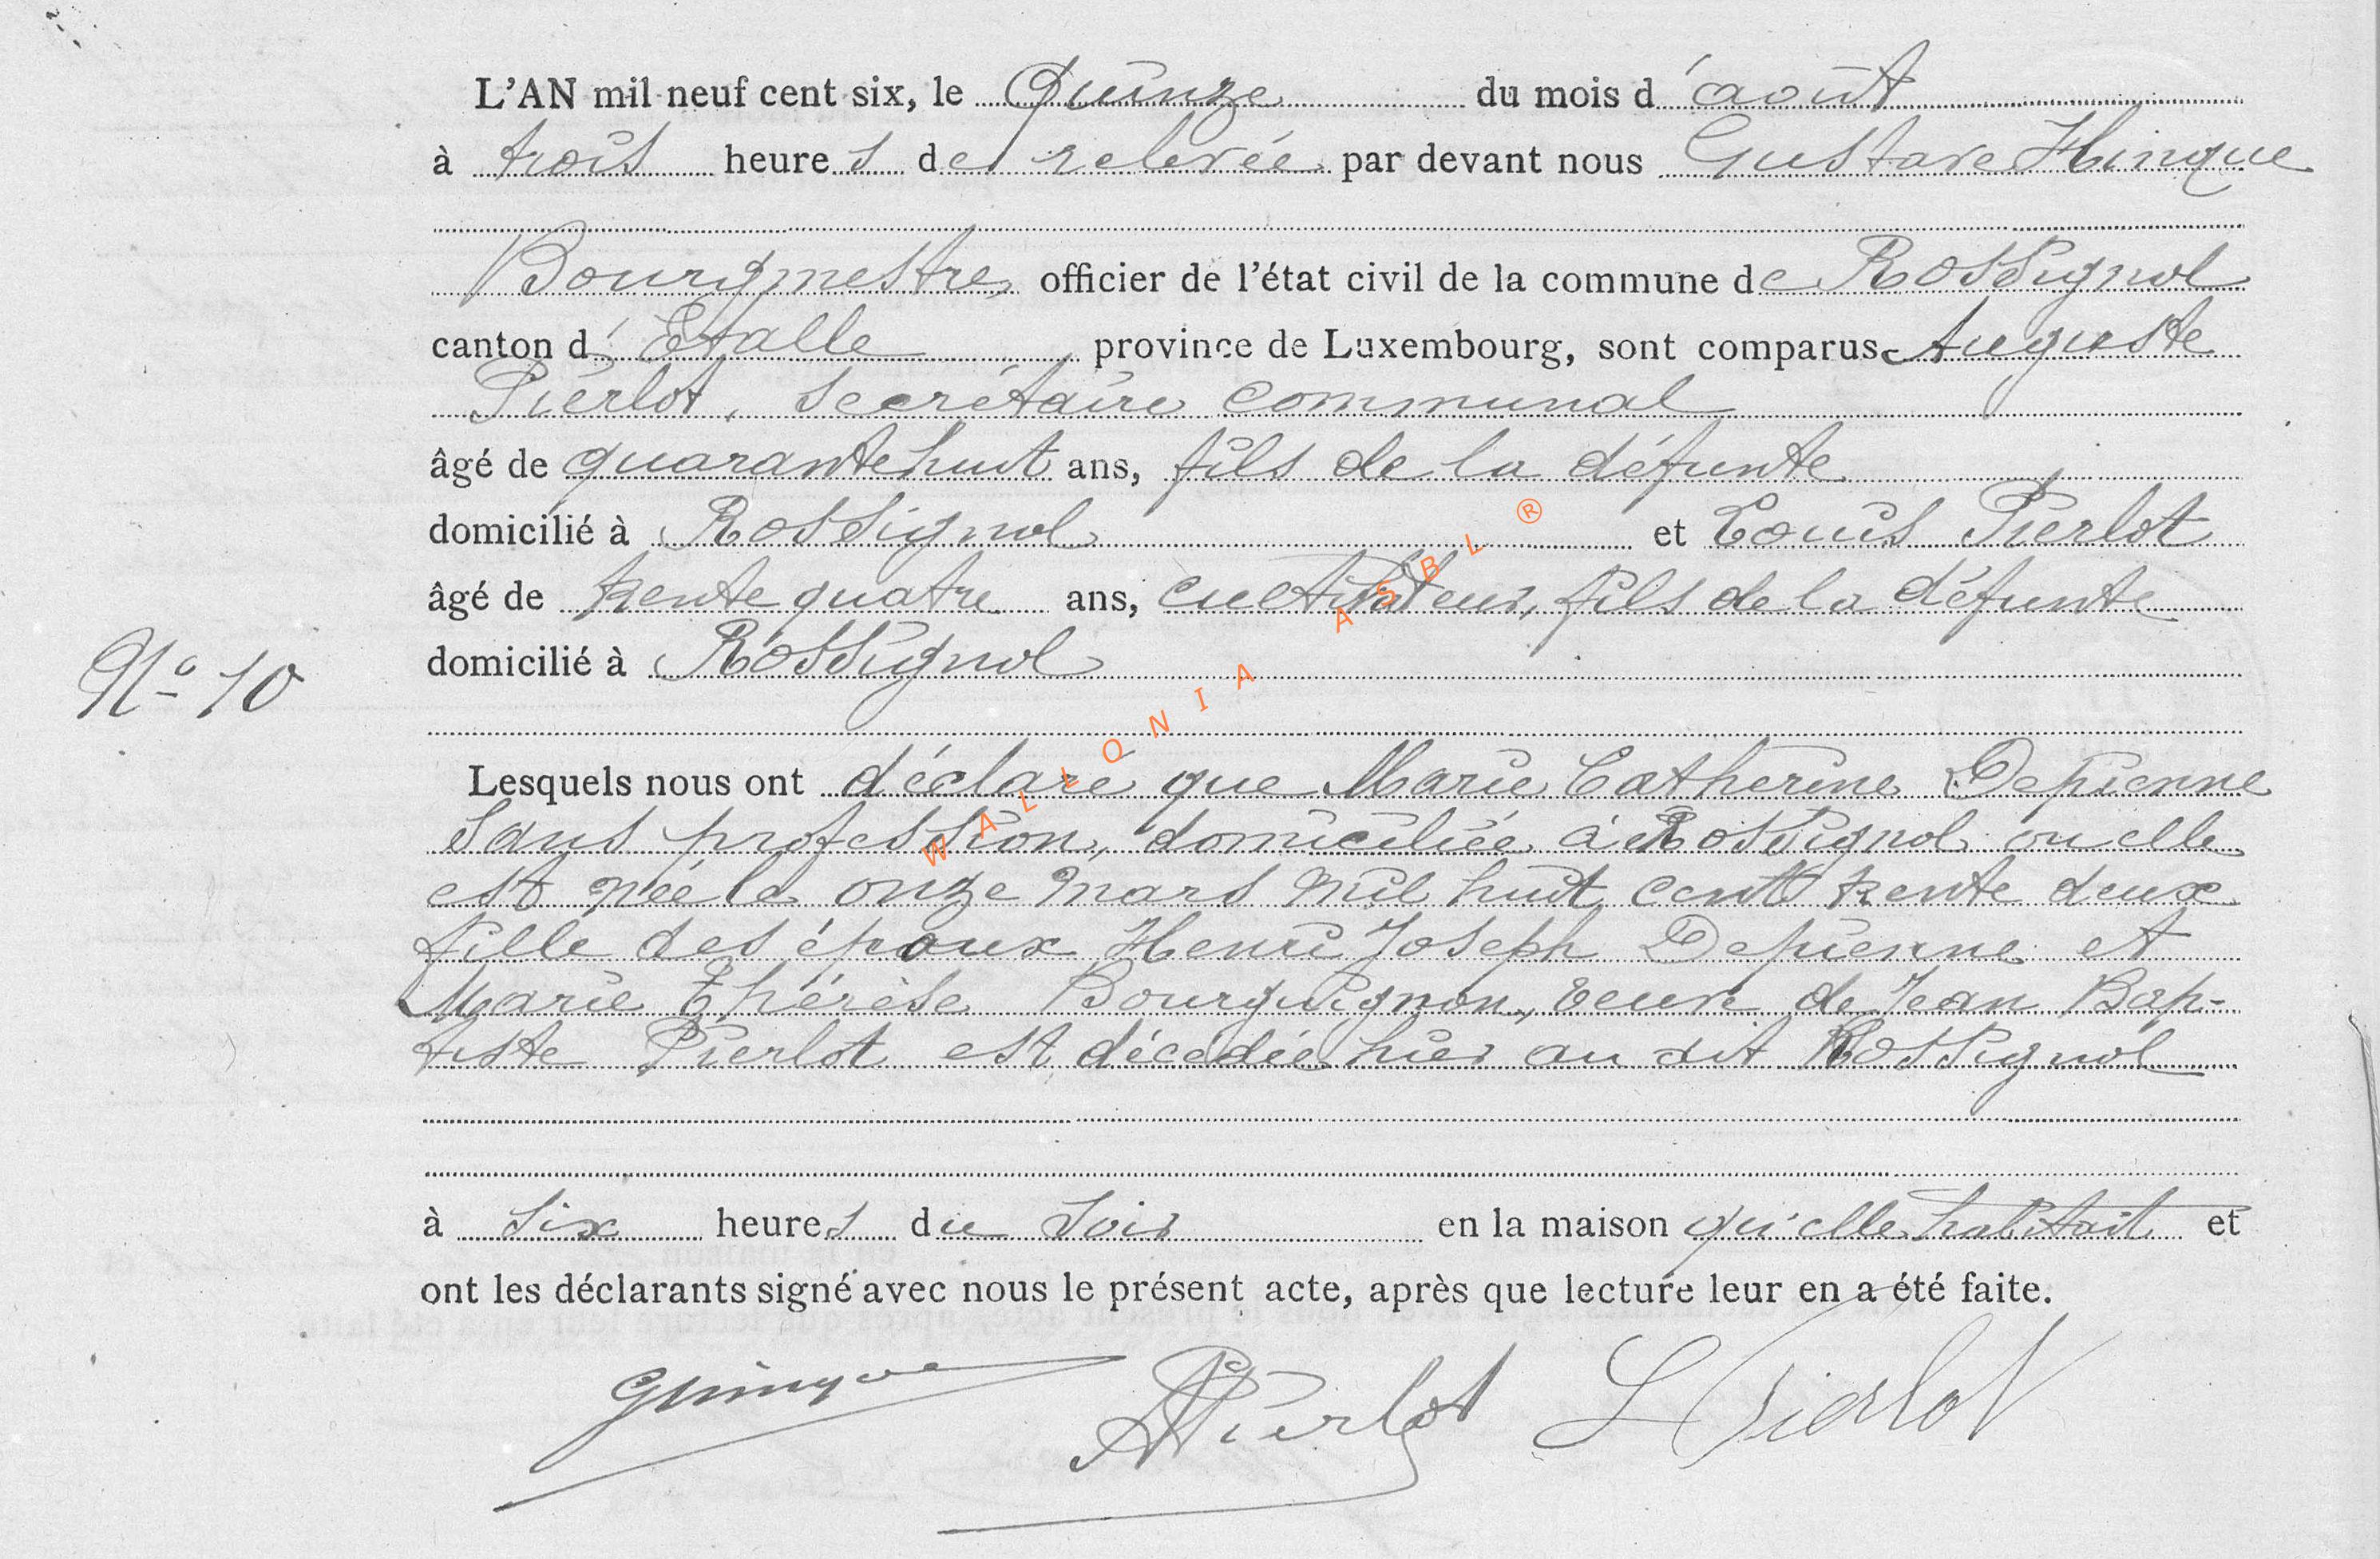 L'AN mil neuf cent six, le Quinze du mois d'août
à trois heures de relevée par devant nous Gustave Hinque
Bourgmestre officier de l'état civil de la commune de Rossignol
canton d'Etalle province de Luxembourg, sont comparus Auguste
Pierlot, secrétaire communal
âgé de quarante huit ans, fils de la défunte
domicilié à Rossignol et Louis Pierlot
âgé de trente quatre ans, cultivateur, fils de la défunte
domicilié à Rossignol
N° 10
Lesquels nous ont déclaré que Marie Catherine Depienne
sans profession, domiciliée à Rossignol où elle
est née le onze mars mil huit cent trente deux
fille des époux Henri Joseph Depienne et
Marie Thérèse Bourguignon, veuve de Jean Bap-
tiste Pierlot est décédée hier au dit Rossignol
à six heures du soir en la maison qu'elle habitait et
ont les déclarants signé avec nous le présent acte, après que lecture leur en a été faite.
GHinque APierlot L Pierlot
WALLONIA ASBL ®